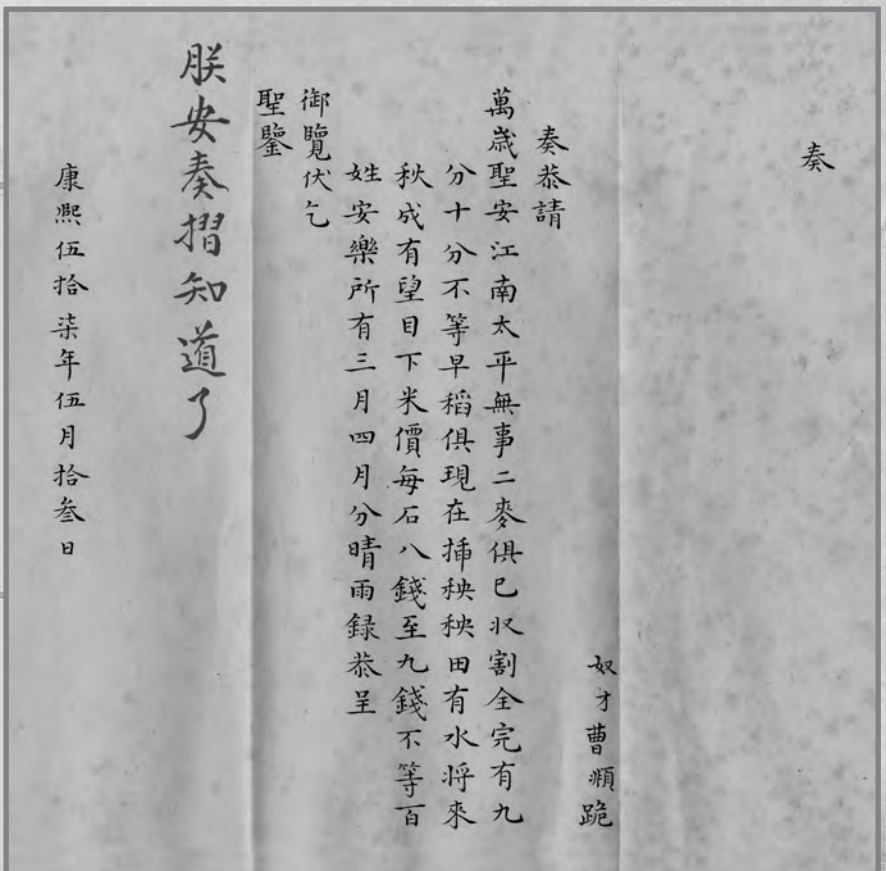 奏
奴才曹頫跪
奏恭請
萬歲聖安江南太平無事二麥俱已収割全完有九
分十分不等早稻俱現在揷秧秧田有水將來
秋成有望目下米價每石八錢至九錢不等百
姓安樂所有三月四月分晴雨録恭呈
御覽伏乞
聖鑒
朕安奏摺知道了
康熙伍拾柒年伍月拾叁日